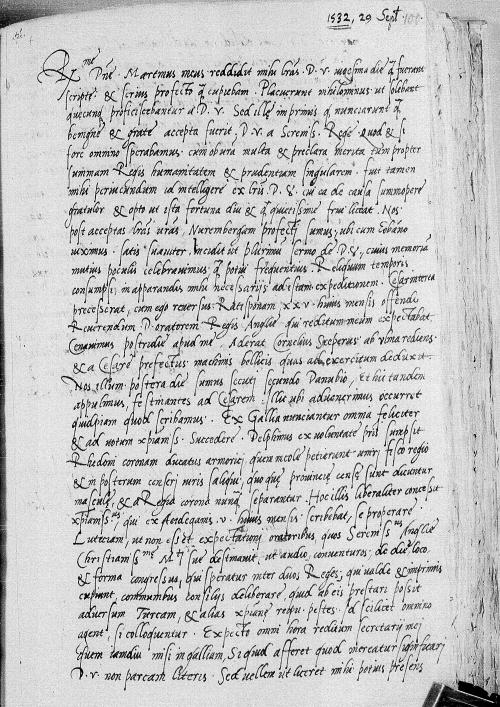 1532, 29 Sept. 101.
R.me Dne. Martinus meus reddidit mihi lras. D. v. vigesima die q fuerant
scripte & serius profecto q cupiebam. Placuerunt nihilominus ut solebant
quecunq proficiscebantur a D. V. Sed ille imprimis q nunciarunt q
benigne & grate accepta fuerit D. V. a Sereniss. Rege. quod & si
fore omnino sperabamus. cum ob sua multa & preclara merita tum propter
summam Regis humanitatem & prudentiam singularem. fuit tamen
mihi periucundum id intelligere ex lris D. V. cui ea de causa summopere
gratulor & opto ut ista fortuna diu & q quietissime frui liceat. Nos
post acceptas lras vras, Nurembergam profecti sumus, ubi cum Cobano
viximus. satis suaviter. Incidit ut plurimum sermo de D. V., cuius memoria
mutuis poculis celebravimus q potui frequentius. Reliquum temporis
consumpsi in apparandis mihi necessariis ad istam expeditionem. Cesar interea
precesserat, cum ego reversus Ratisponam xxv. huius mensis offendi
Reverendum D. oratorem Regis Anglie qui reditum meum expectabat
Cenavimus postridie apud me. Aderat Cornelius Sceperus ab vrbna rediens
& a Cesare prefectus machinis bellicis quas ad exercitum deduxit.
Nos illum postera die sumus secuti secundo Danubio, Et hi tandem
appulimus, festinantes ad Cesarem. Illic ubi advenerimus occurret
quidpiam quod scribamus. Ex Gallia nunciantur omnia feliciter
& ad votum xpianiss. Succedere. Delphinus ex voluntate pris sumpsit
Rhedoni coronam ducatus armorici, quem incole petierunt uniri fisco regio
& in posterum censeri iuris salici, quo que provincie cense sunt dicuntur
masculę, & a Regia corona nunq separantur. Hoc illis liberaliter concessit
xpianiss.us, qui ex Andegavis. v. huius mensis scribebat, se properare
Lutetiam, ut non esset expectationi oratoribus quos Sereniss.us Anglie
Christianiss.me M.ti sue destinavit, ut audio, conventuros. de die loco
& forma congressus, qui speratur inter duos Reges, qui valde & imprimis
cupiunt, communibus consiliis deliberare, quid ab eis prestari possit
adversum Turcam, & alias xpiane reipu. pestes. Id scilicet omnino
agent, si colloquentur. Expecto omni hora reditum secretarii mei
quem iamdiu misi in galliam, Si quid afferet quod mereatur significari
D. v. non parcam literis. Sed vellem ut liceret mihi potius presens